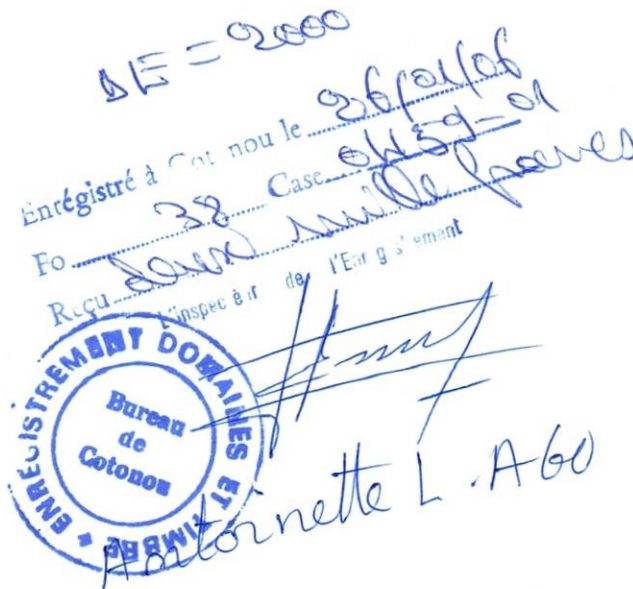 DE = 2000
Enrégistré à Cotonou le 26/01/06
Fo 38 Case 0459-01
Reçu deux mille francs
l'Inspecteur de l'Enregistrement
ENREGISTREMENT DOMAINES ET TIMBRE
Bureau
de
Cotonou
Antoinette L. AGO